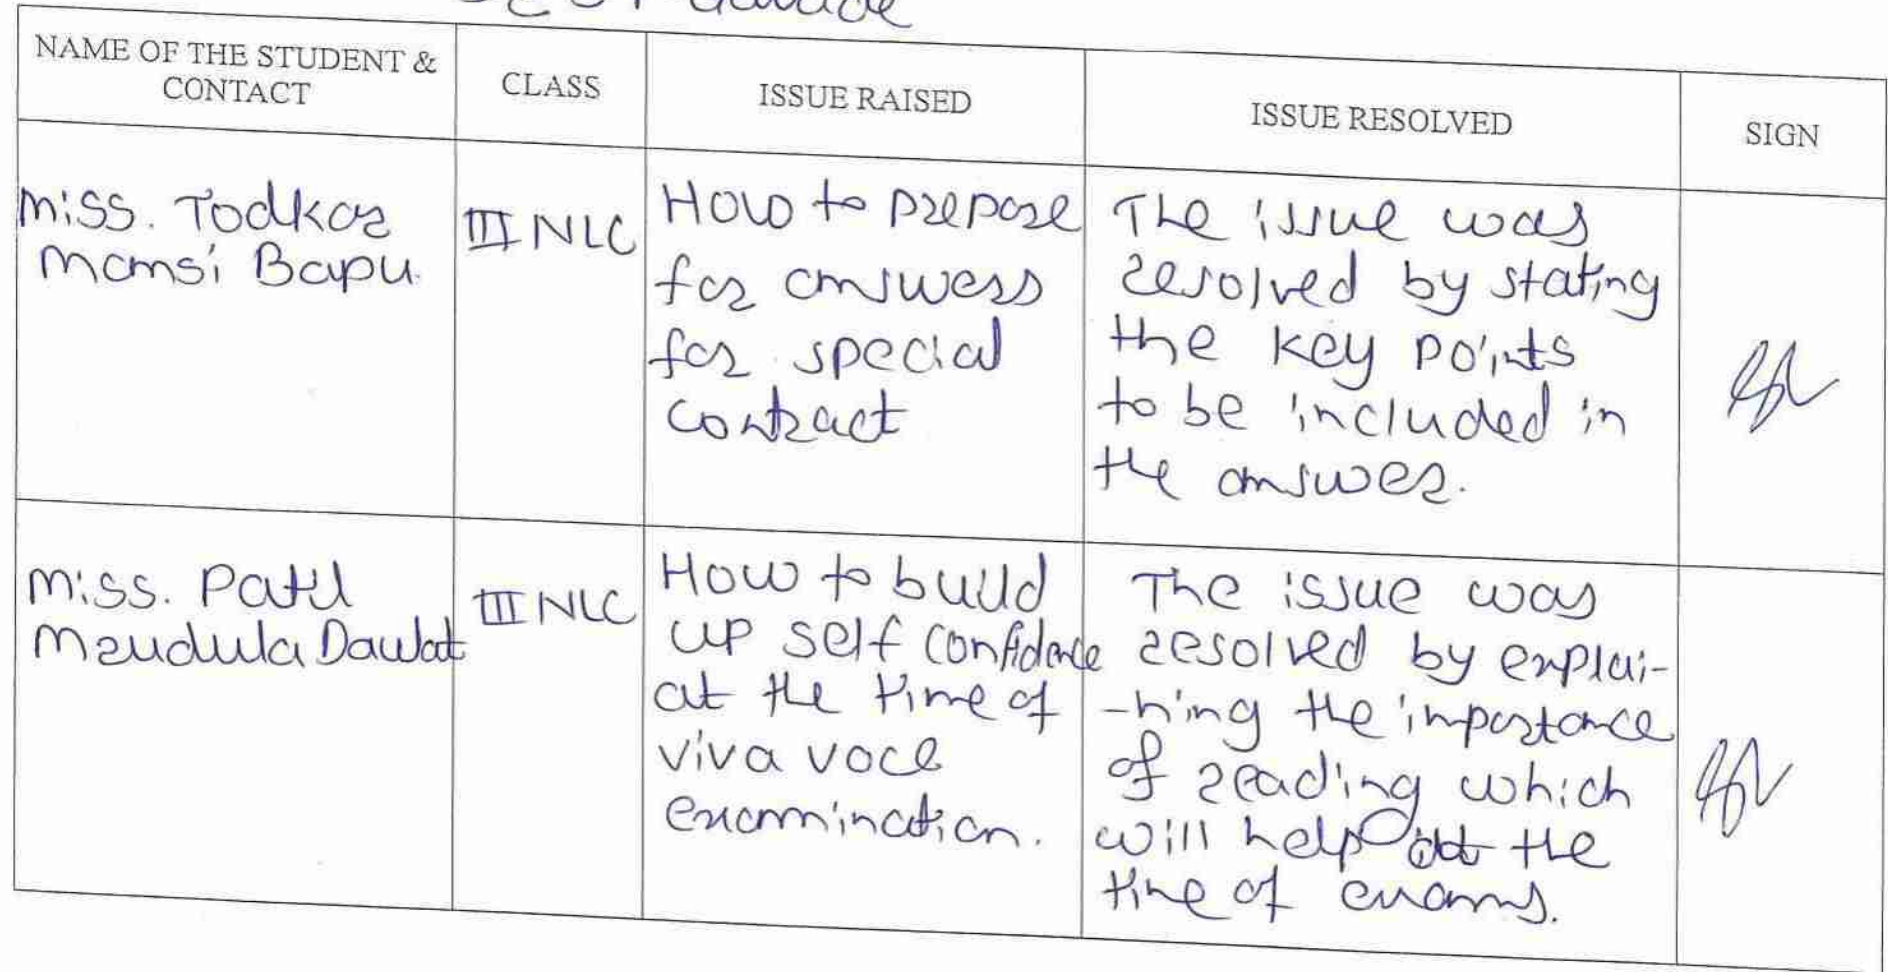 NAME OF THE STUDENT &
CONTACT
CLASS
ISSUE RAISED
ISSUE RESOLVED
SIGN
Miss. Todkar
Mansi Bapu.
III NLC
How to prepare
for answers
for special
contract
The issue was
resolved by stating
the key points
to be included in
the answer.
Miss. Patil
Mrudula Dawlat
III NLC
How to build
up self confidence
at the time of
viva voce
examination.
The issue was
resolved by explai-
-ning the importance
of reading which
will help at the
time of exams.